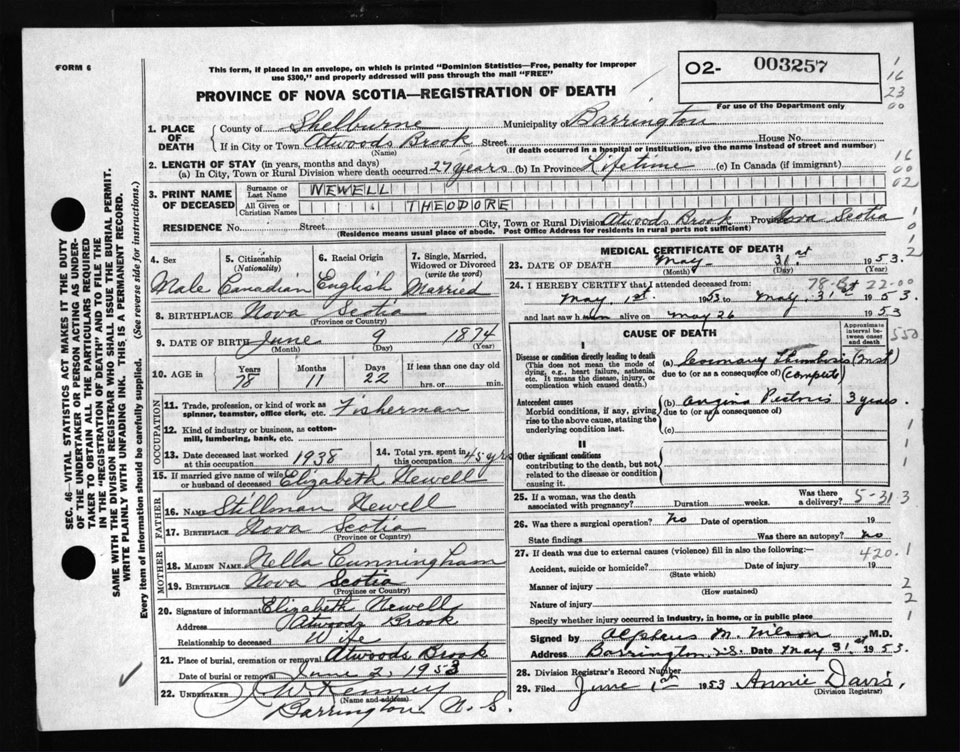 FORM 6
This form, if placed in an envelope, on which is printed "Dominion Statistics—Free, penalty for improper
use $300," and properly addressed will pass through the mail "FREE"
02- 003257
For use of the Department only
PROVINCE OF NOVA SCOTIA—REGISTRATION OF DEATH
1. PLACE OF DEATH
County of Shelburne Municipality of Barrington
If in City or Town Atwoods Brook Street House No.
(Name) (If death occurred in a hospital or institution, give the name instead of street and number)
2. LENGTH OF STAY (in years, months and days)
(a) In City, Town or Rural Division where death occurred 27 years (b) In Province Lifetime (c) In Canada (if immigrant)
3. PRINT NAME OF DECEASED
Surname or Last Name NEWELL
All Given or Christian Names THEODORE
RESIDENCE No. Street City, Town or Rural Division Atwoods Brook Province Nova Scotia
(Residence means usual place of abode. Post Office Address for residents in rural parts not sufficient)
4. Sex
Male
5. Citizenship (Nationality)
Canadian
6. Racial Origin
English
7. Single, Married, Widowed or Divorced (write the word)
Married
8. BIRTHPLACE Nova Scotia
(Province or Country)
9. DATE OF BIRTH June 9 1874
(Month) (Day) (Year)
10. AGE in Years 78 Months 11 Days 22 If less than one day old hrs. or min.
OCCUPATION
11. Trade, profession, or kind of work as
spinner, teamster, office clerk, etc. Fisherman
12. Kind of industry or business, as cotton-
mill, lumbering, bank, etc.
13. Date deceased last worked
at this occupation 1938
14. Total yrs. spent in
this occupation 45 yrs
15. If married give name of wife
or husband of deceased Elizabeth Newell
FATHER
16. Name Stillman Newell
17. Birthplace Nova Scotia
(Province or Country)
MOTHER
18. MAIDEN NAME Nella Cunningham
19. BIRTHPLACE Nova Scotia
(Province or Country)
20. Signature of informant Elizabeth Newell
Address Atwoods Brook
Relationship to deceased Wife
21. Place of burial, cremation or removal Atwoods Brook
Date of burial or removal June 2, 1953
22. UNDERTAKER Kenney
(Name and address)
Barrington N. S.
MEDICAL CERTIFICATE OF DEATH
23. DATE OF DEATH May 31st 1953.
(Month) (Day) (Year)
24. I HEREBY CERTIFY that I attended deceased from: 22-00
May 1st. 1953 to May 31st 1953
and last saw him alive on May 26 1953
CAUSE OF DEATH
Approximate interval between onset and death
I
Disease or condition directly leading to death
(This does not mean the mode of
dying, e.g., heart failure, asthenia,
etc. It means the disease, injury, or
complication which caused death.)
(a) Coronary Thrombosis (Inst)
due to (or as a consequence of) (Complete)
Antecedent causes
Morbid conditions, if any, giving
rise to the above cause, stating the
underlying condition last.
(b) Angina Pectoris 3 years.
due to (or as a consequence of)
(c)
II
Other significant conditions
contributing to the death, but not
related to the disease or condition
causing it.
25. If a woman, was the death
associated with pregnancy? Duration weeks. Was there a delivery? 5-31 3
26. Was there a surgical operation? No Date of operation 19
State findings Was there an autopsy? No
27. If death was due to external causes (violence) fill in also the following:— 420.1
Accident, suicide or homicide? Date of injury 19
(State which)
Manner of injury
(How sustained)
Nature of injury
Specify whether injury occurred in industry, in home, or in public place
Signed by Alpheus M. Wilson M.D.
Address Barrington, N.S. Date May 31st 1953.
28. Division Registrar's Record Number
29. Filed June 1st 1953 Annie Davis,
(Division Registrar)
SEC. 46—VITAL STATISTICS ACT MAKES IT THE DUTY
OF THE UNDERTAKER OR PERSON ACTING AS UNDER-
TAKER TO OBTAIN ALL THE PARTICULARS REQUIRED
IN THE "REGISTRATION OF DEATH" AND TO FILE THE
SAME WITH THE DIVISION REGISTRAR WHO SHALL ISSUE THE BURIAL PERMIT.
WRITE PLAINLY WITH UNFADING INK. THIS IS A PERMANENT RECORD.
Every item of information should be carefully supplied. (See reverse side for instructions.)
1
16
23
00
16
00
02
550